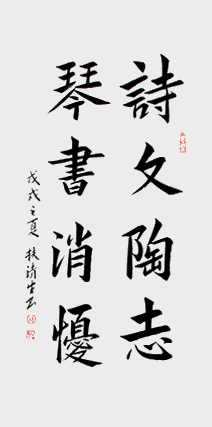 詩文陶志
琴書消憂
戊戌之夏 扶清生書